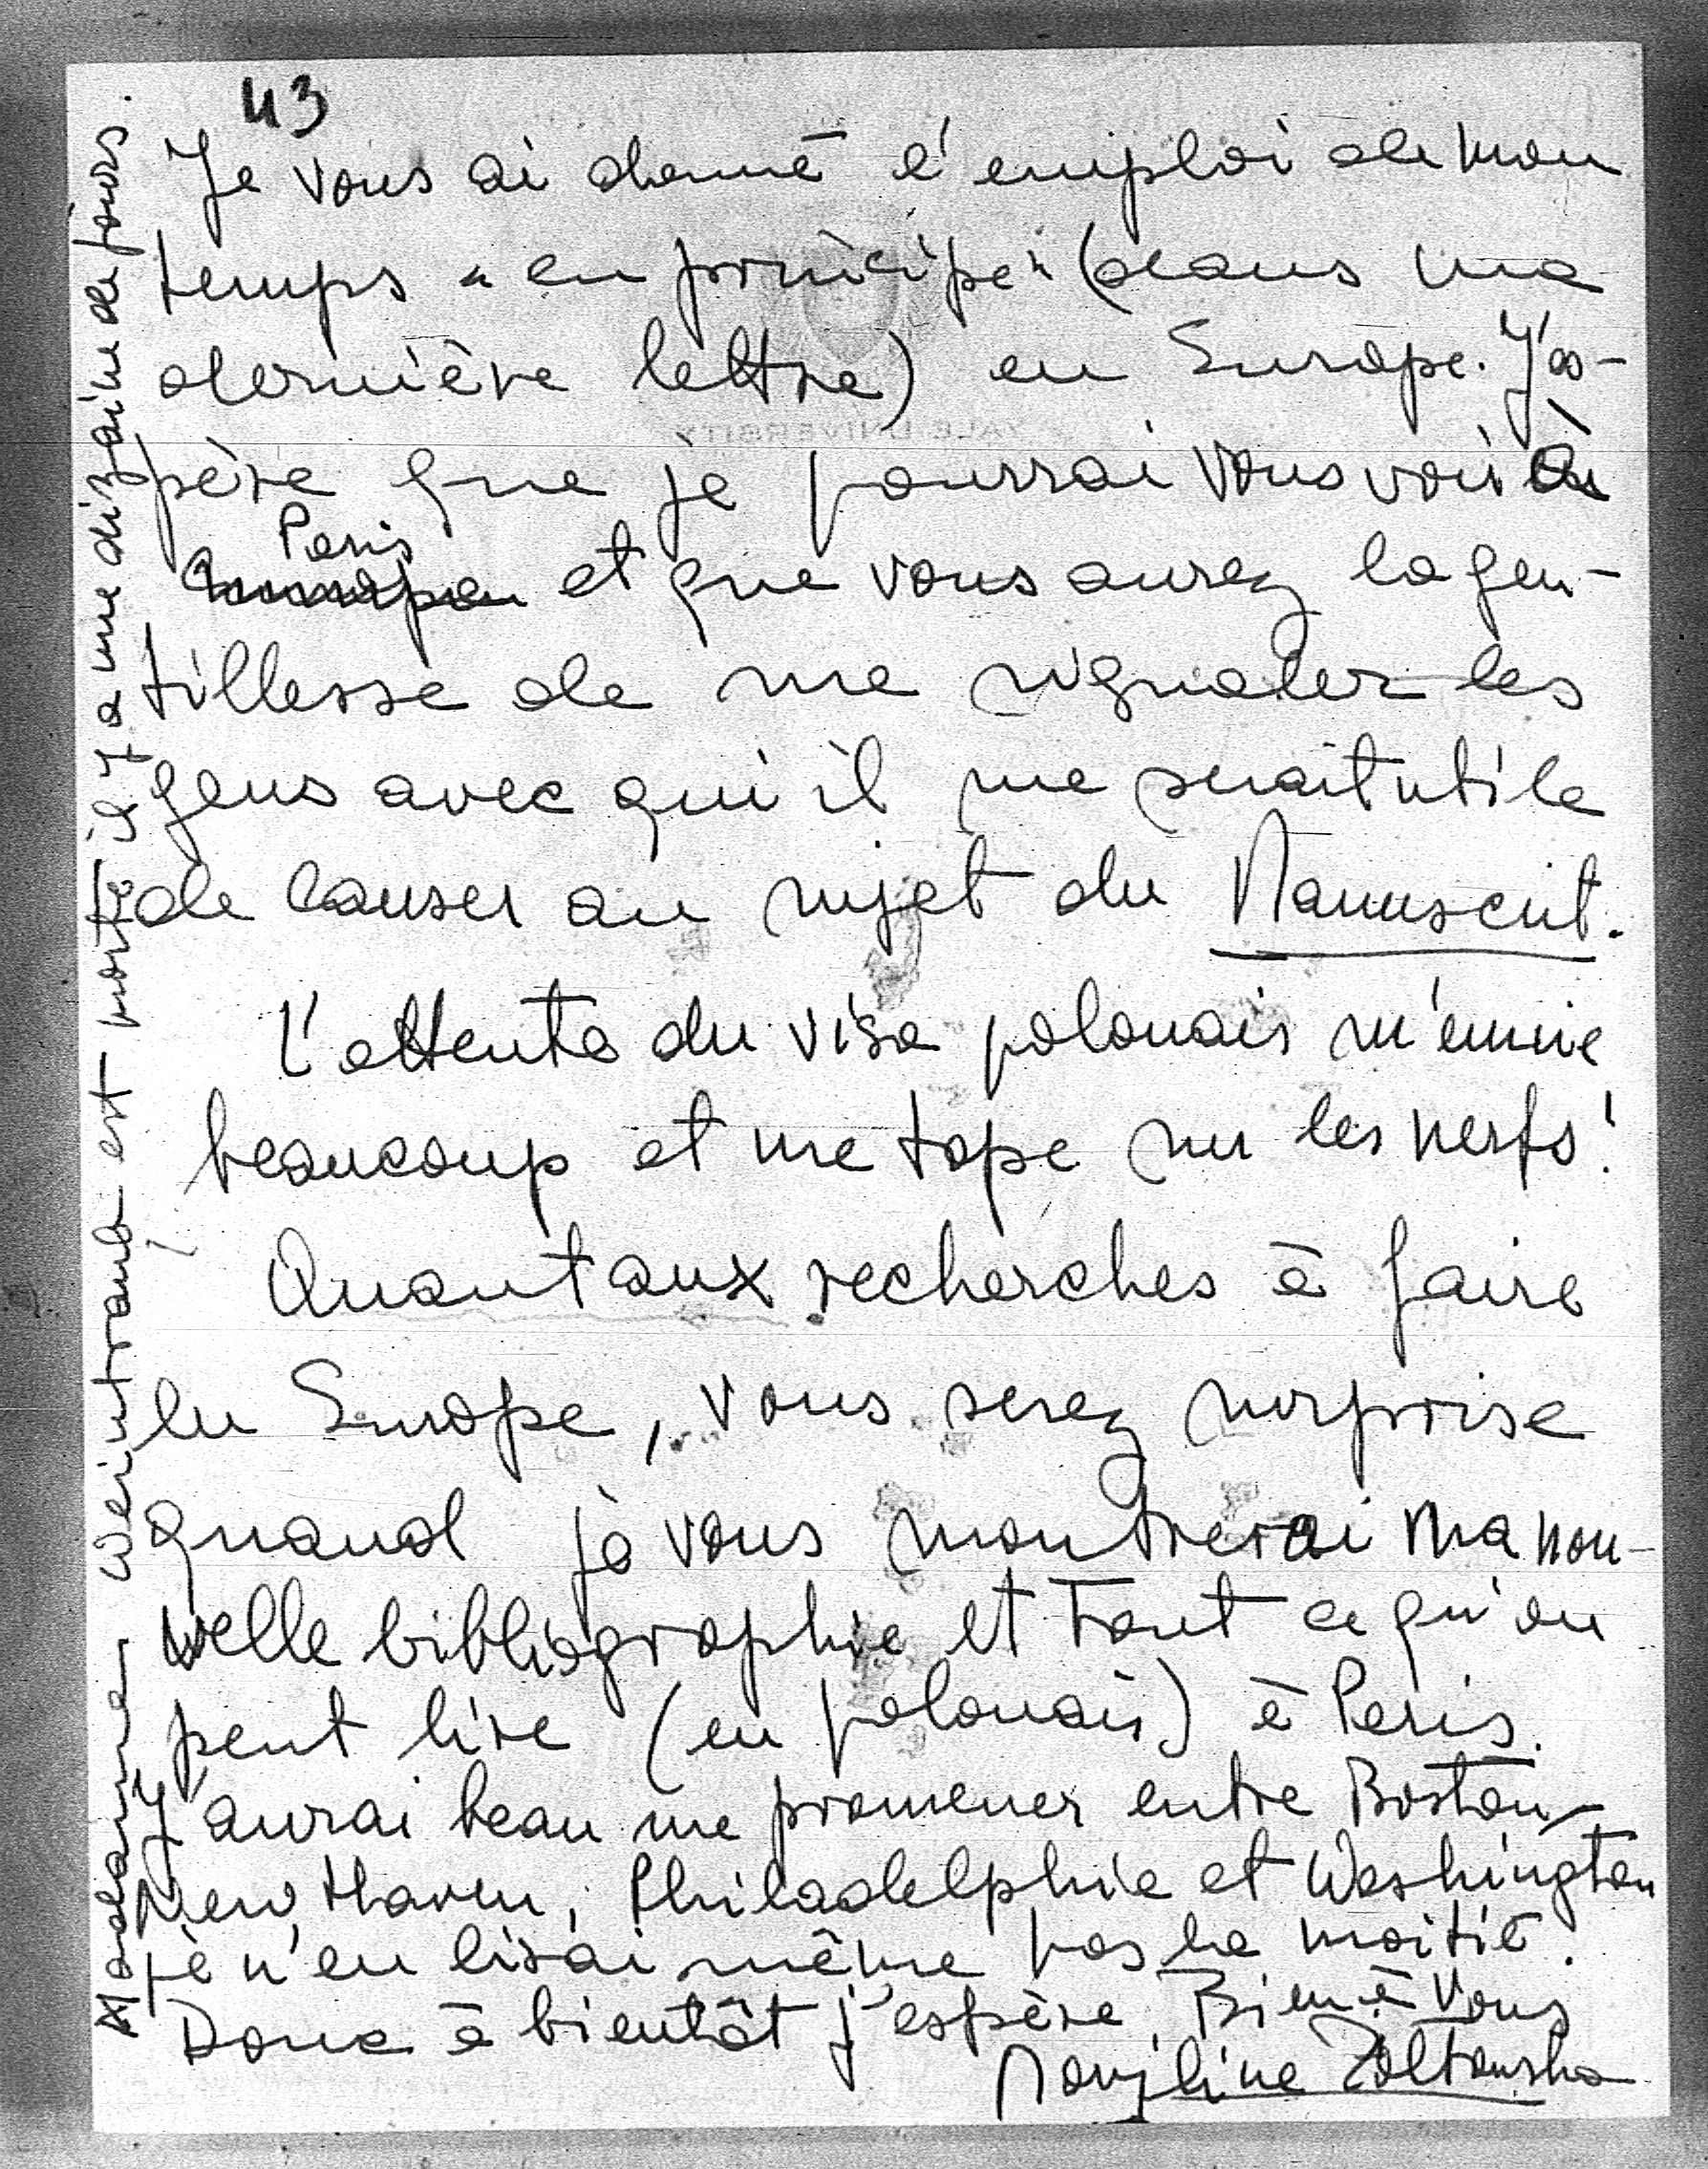 43
Je vous ai donné l'emploi de mon
temps "en principe" (dans ma
dernière lettre) en Europe. J'es-
père que je pourrai vous voir à
Paris
et que vous aurez la gen-
tillesse de me signaler les
gens avec qui il me serait utile
de causer au sujet du Manuscrit.
L'attente du visa polonais m'ennuie
beaucoup et me tape sur les nerfs!
Quant aux recherches à faire
en Europe, vous serez surprise
quand je vous montrerai ma nou-
velle bibliographie et tout ce qu'on
peut lire (en polonais) à Paris.
J'aurai beau me promener entre Boston,
New Haven, Philadelphie et Washington
je n'en lirai même pas la moitié.
Donc à bientôt j'espère. Bien à vous
Maryline Żółtowska
Madame Weintraub est morte il y a une dizaine de jours.
YALE UNIVERSITY